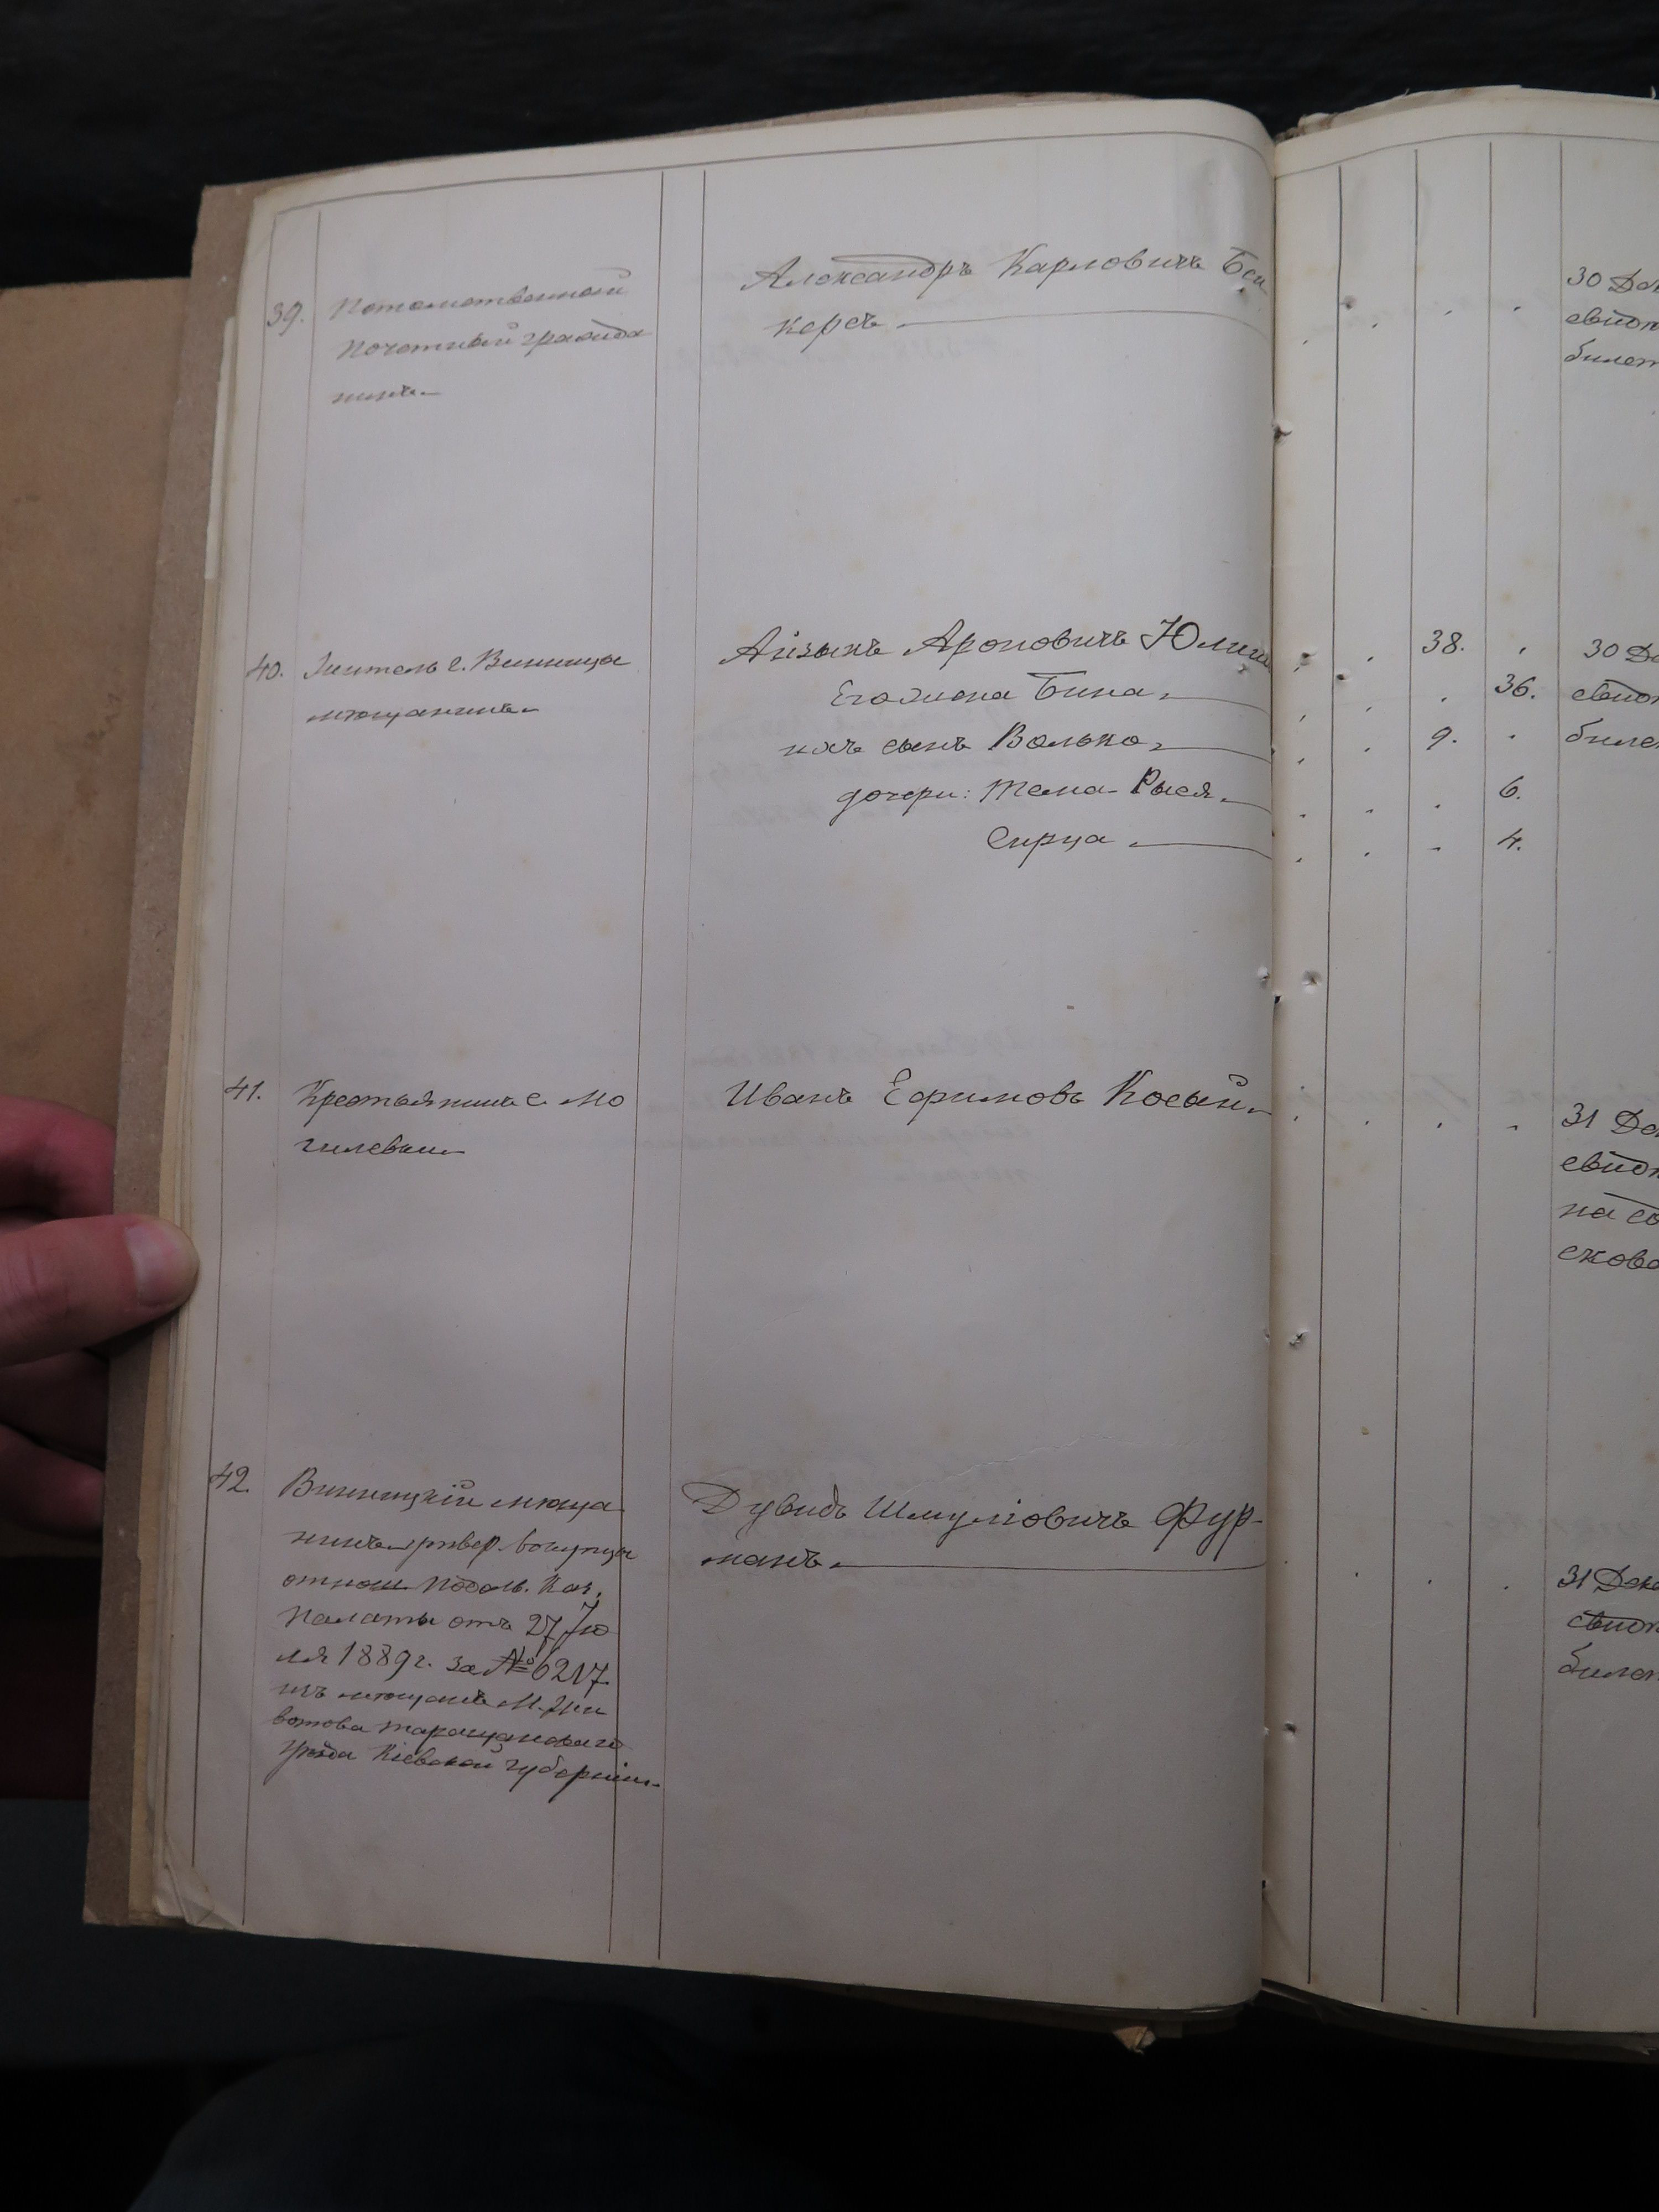 39.
Потомственный
Почетный гражда
нинъ
Александръ Карловичъ
керсъ
30
билет
40.
Житель г. Винницы
мѣщанинъ
Айзыкъ Ароновичъ Юлиш
38.
30 Де
Его жена Бина
36.
свидѣ
ихъ сынъ Волько
9.
биле
дочери: Тема Рыся
6.
Сирца
4.
41.
Крестьянинъ с. Мо
гилевки
Иванъ Ефимовъ Косый
31 Де
свидѣ
на со
42.
Винницкій мѣща
нинъ
отнош. Подол. Каз.
Палаты отъ 27 Iю
ля 1889 г. за № 6217
изъ мѣщанъ М. Жи
вотова Таращанскаго
уѣзда Кіевской губерніи
Дувидъ Шмуліовичъ Фур-
манъ
31 Дек
свидѣ
билет